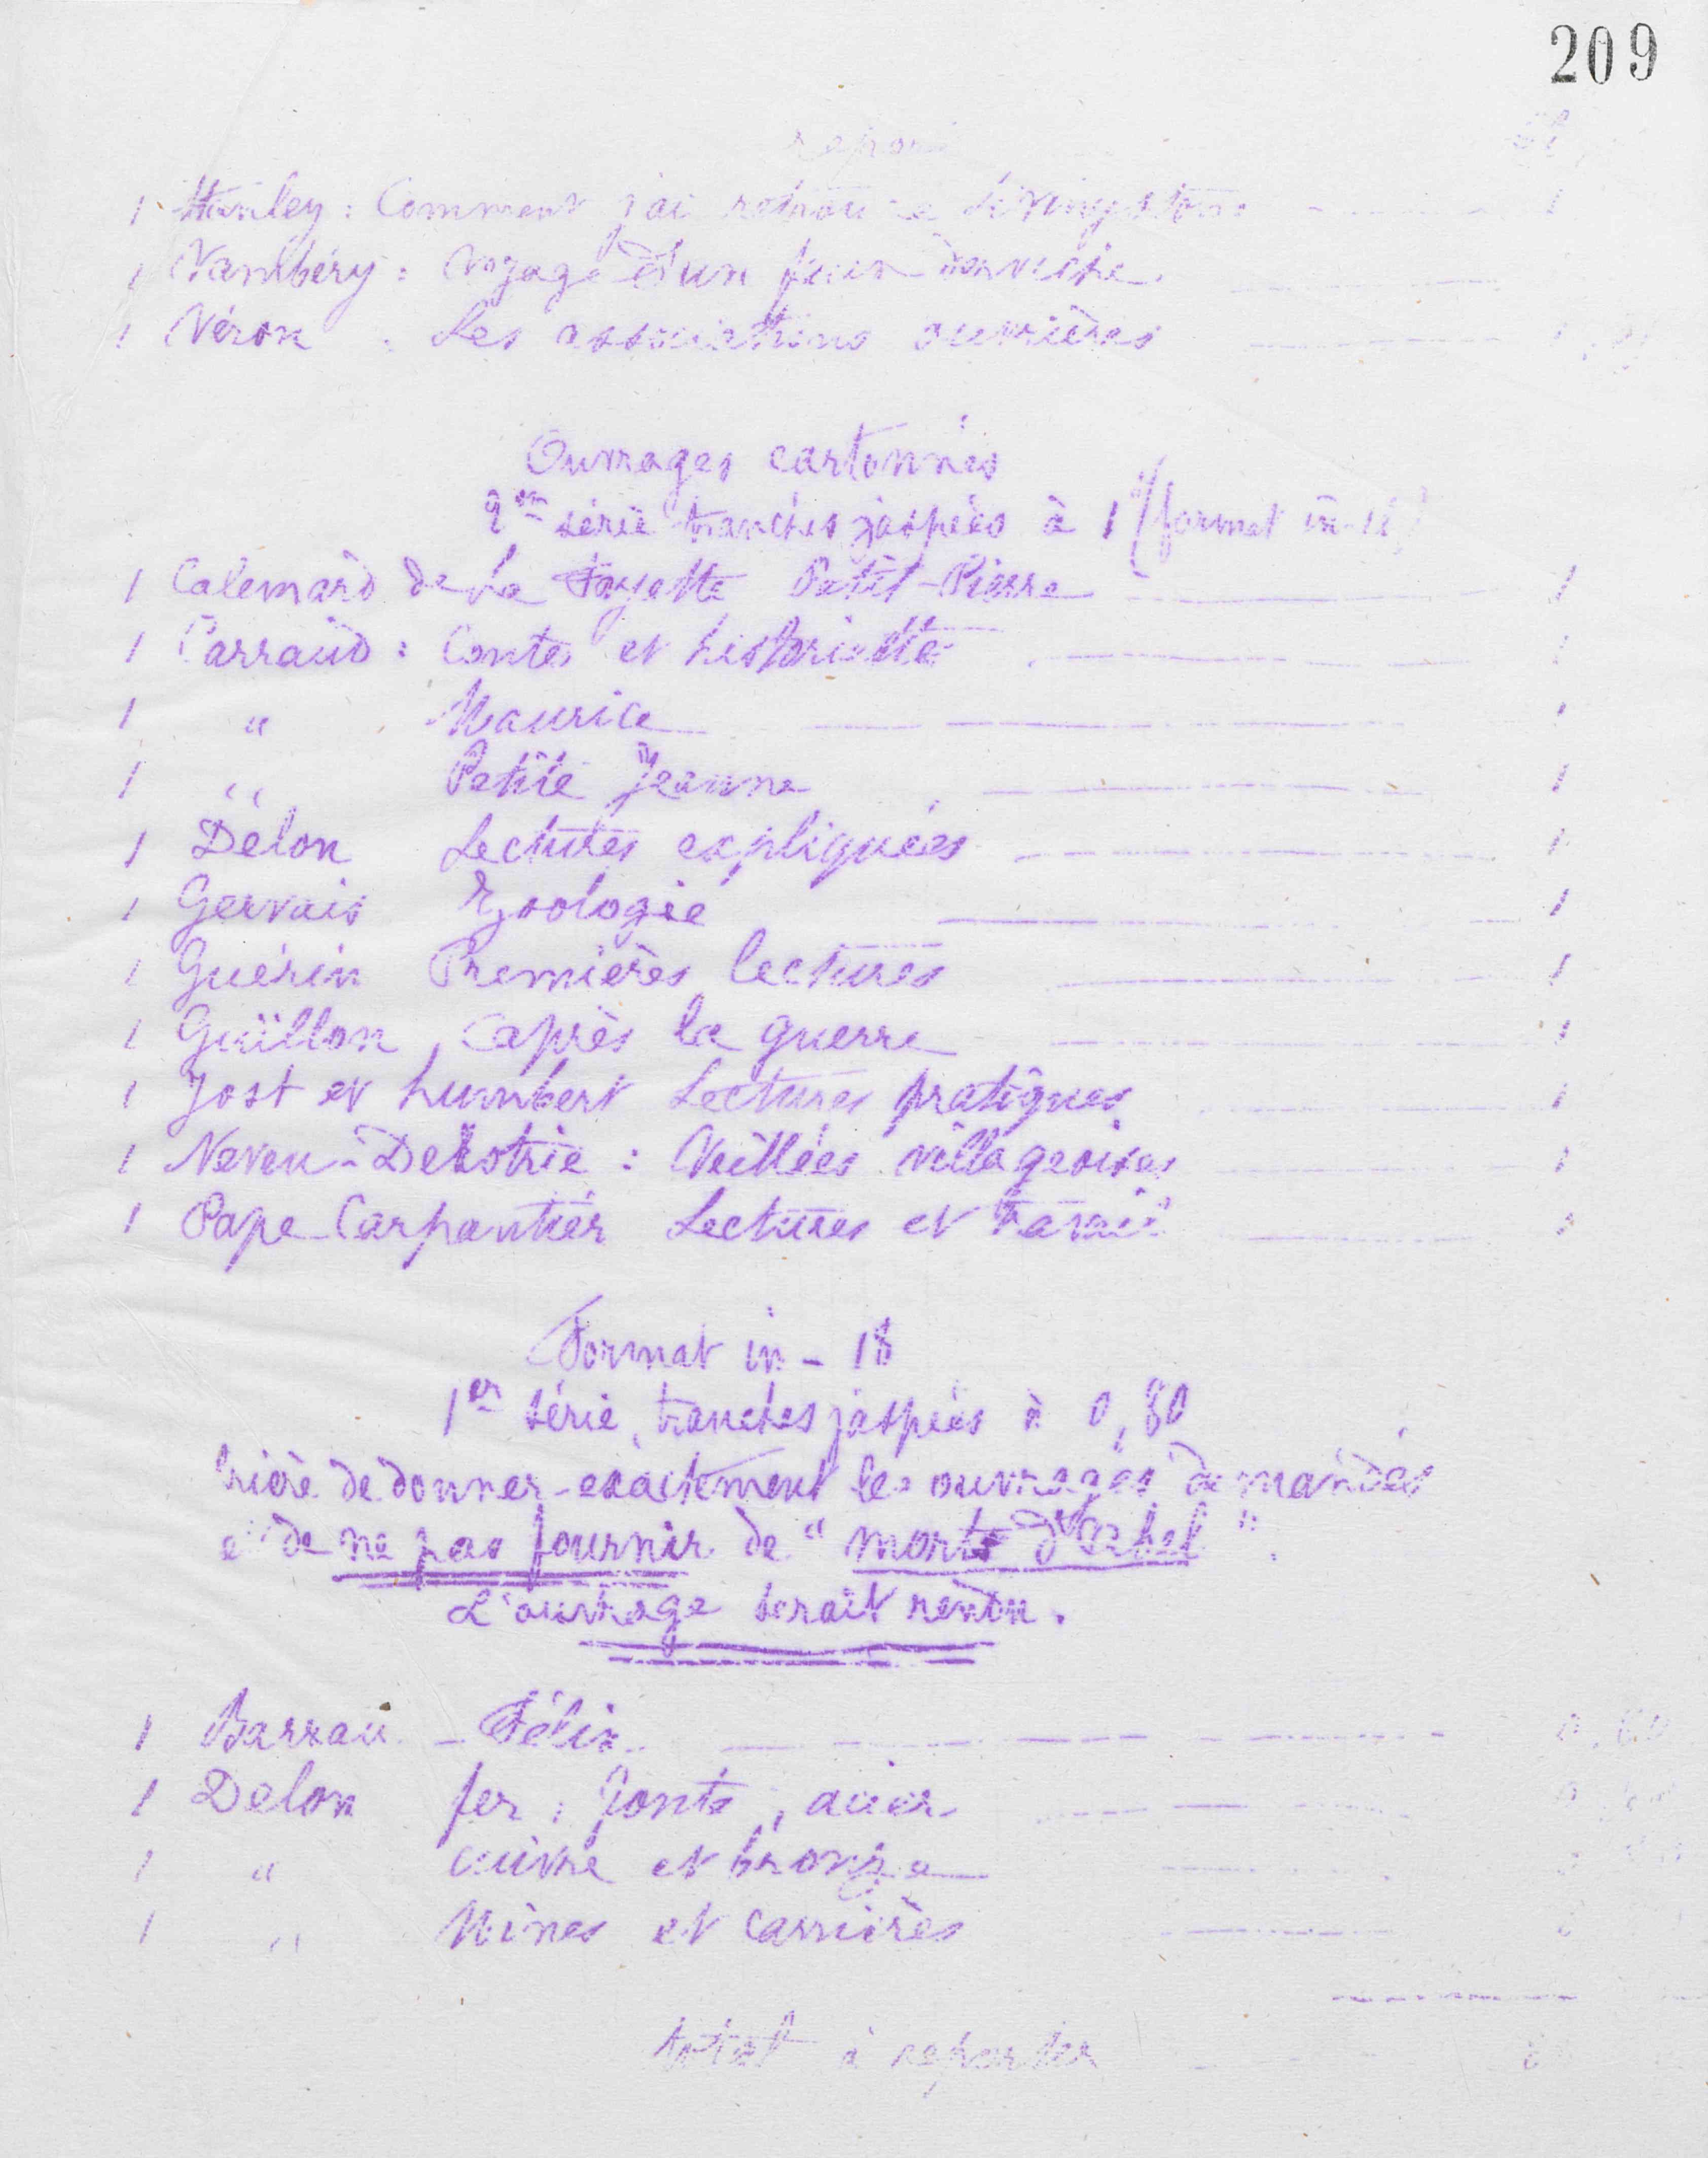 209
report
1 Stanley : Comment j'ai retrouvé Livingstone 1
1 Vambéry : Voyage d'un faux derviche
1 Véron : Les associations ouvrières 1
Ouvrages cartonnés
2me série tranches jaspées à 1f (format in-18)
1 Calemard de La Fayette Petit-Pierre 1
1 Carraud : Contes et historiettes 1
1 " Maurice 1
1 " Petite Jeanne 1
1 Delon Lectures expliquées 1
1 Gervais Zoologie 1
1 Guérin Premières lectures 1
1 Guillon après la guerre 1
1 Jost et humbert Lectures pratiques 1
1 Neveu-Derotrie : Veillées villageoises 1
1 Pape-Carpantier Lectures et travail 1
Format in-18
1er série, tranches jaspées à 0,80
Prière de donner exactement les ouvrages demandés
et de ne pas fournir de "mort d'Abel".
L'ouvrage serait rendu.
1 Barrau - Félix 0,80
1 Delon fer, fonte, acier 0
1 " cuivre et bronze
1 " Mines et Carrières
total à reporter